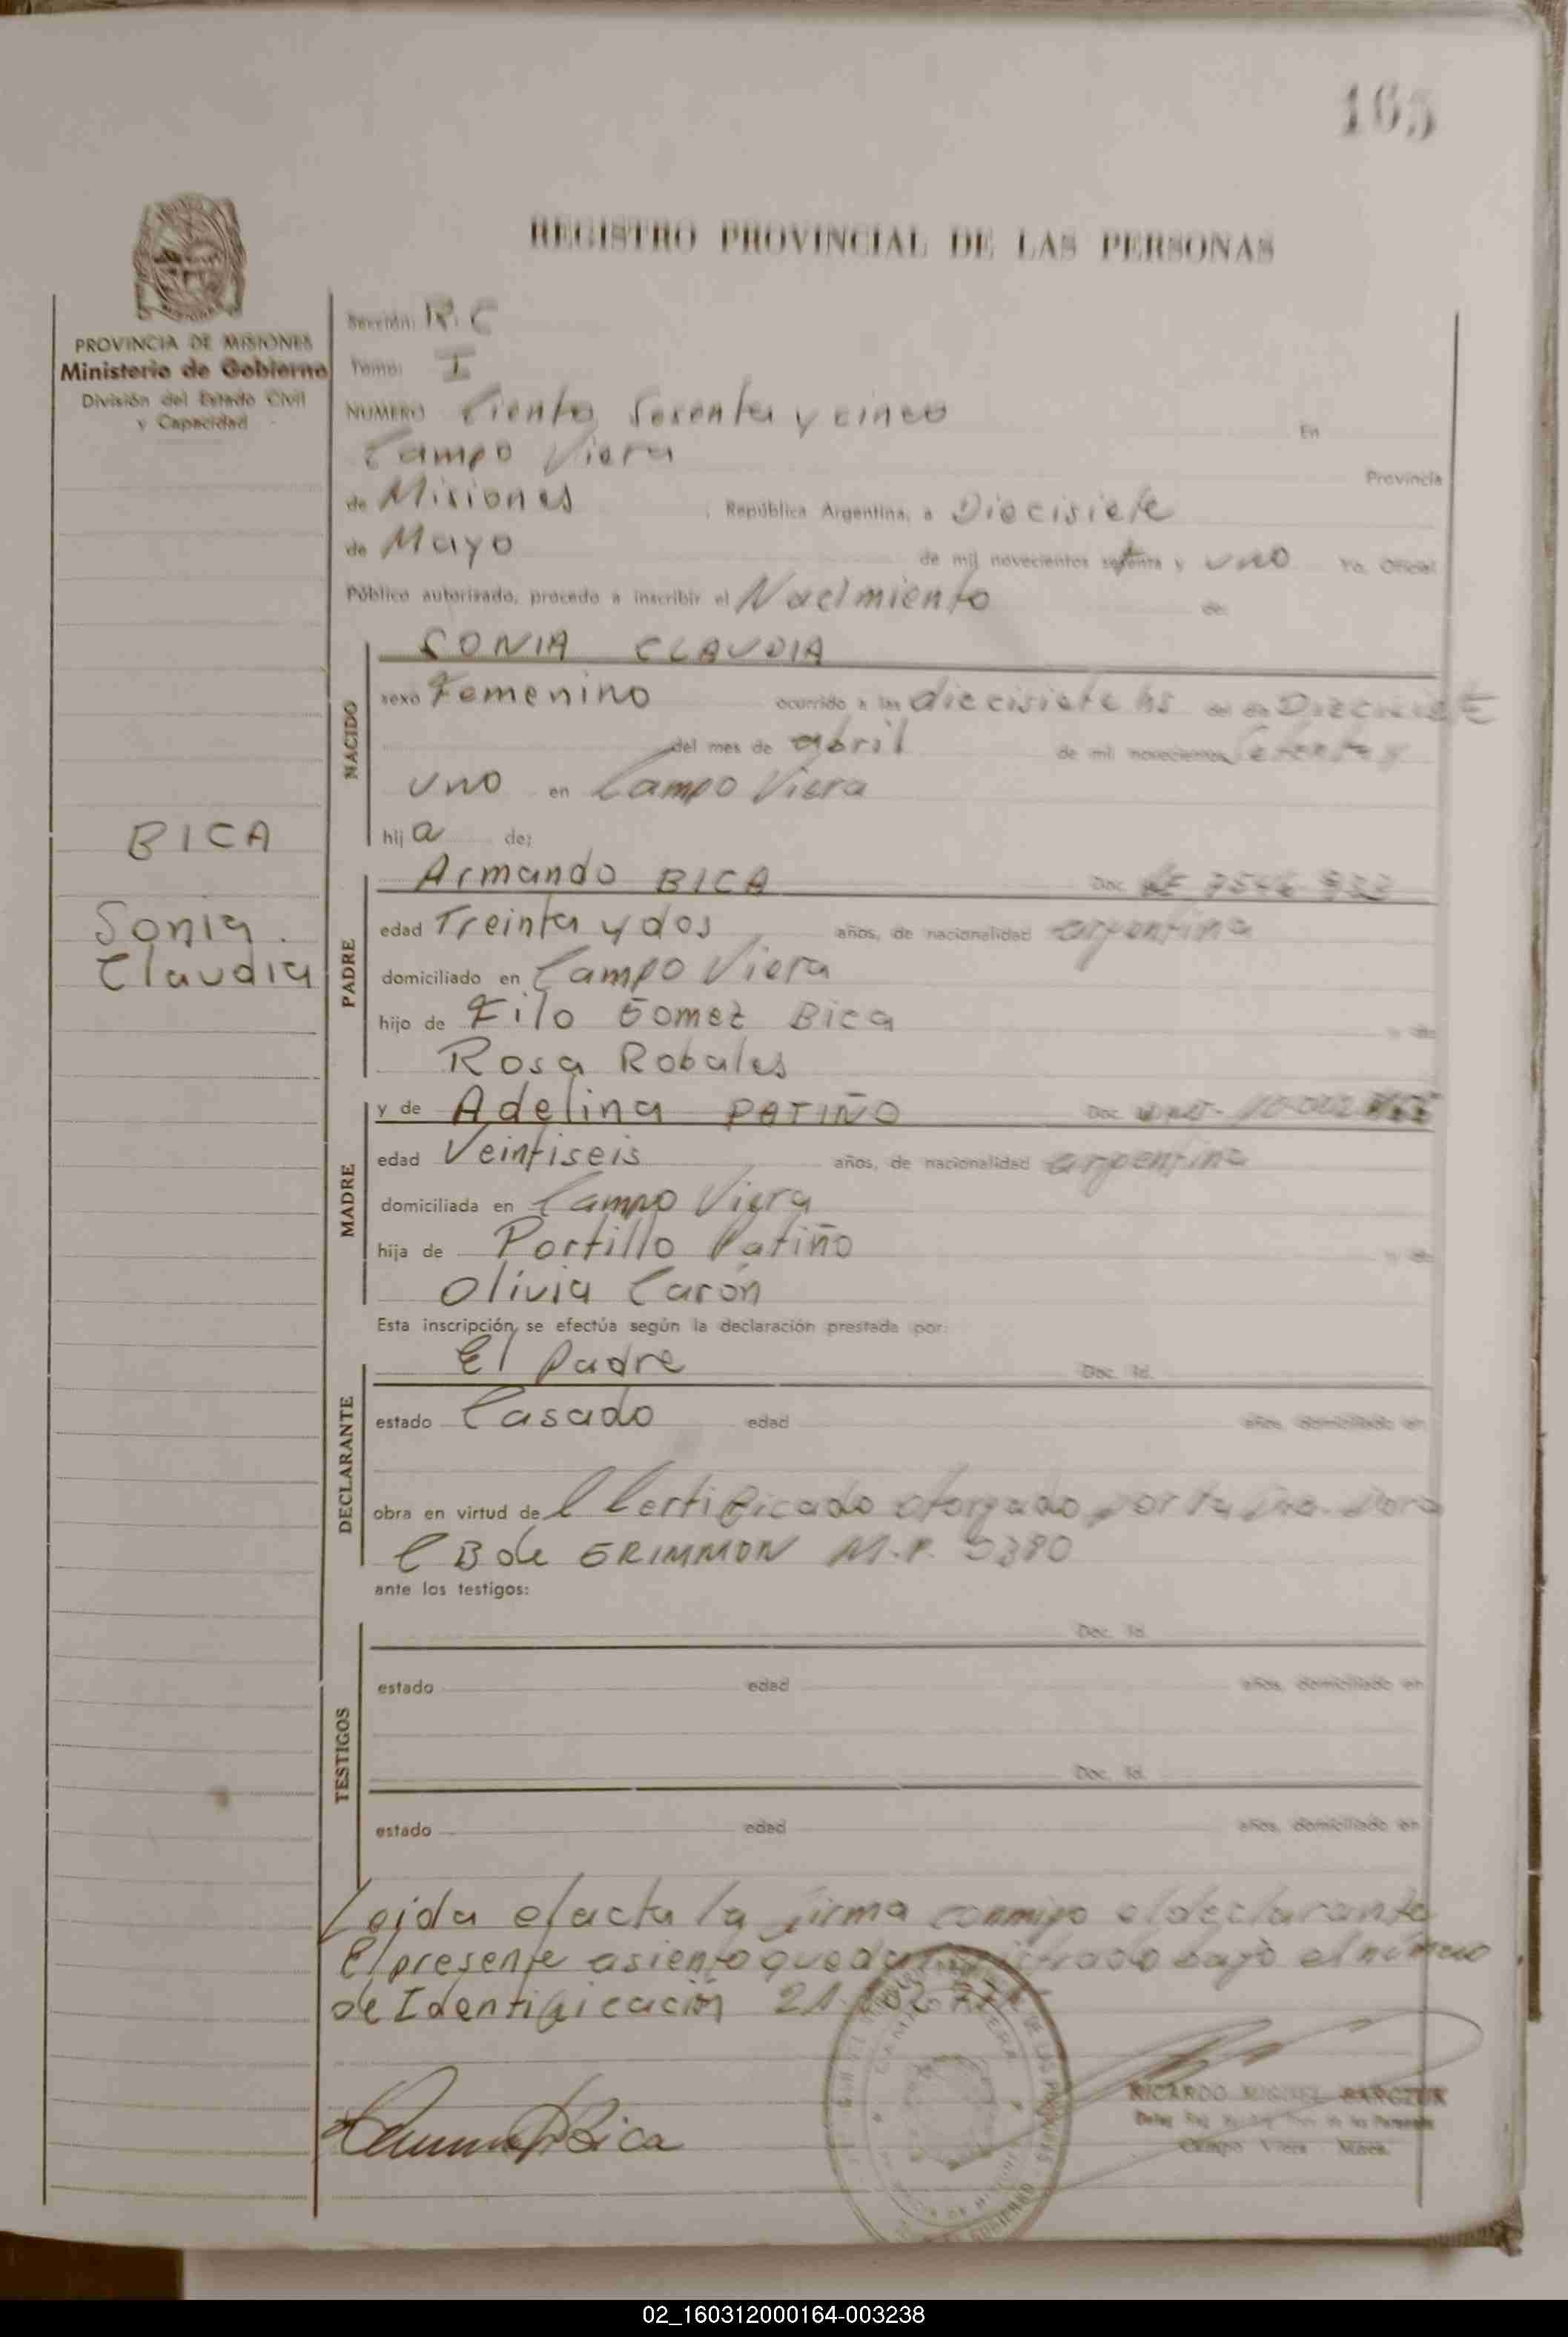 165
REGISTRO PROVINCIAL DE LAS PERSONAS
PROVINCIA DE MISIONES
Ministerio de Gobierno
División del Estado Civil
y Capacidad
Sección: R.C
Tomo: I
NUMERO Ciento Sesenta y cinco En
Campo Viera Provincia
de Misiones , República Argentina, a Diecisiete
de Mayo de mil novecientos setenta y uno Yo, Oficial
Público autorizado, procedo a inscribir el Nacimiento de:
NACIDO
SONIA CLAUDIA
sexo Femenino ocurrido a las diecisiete hs del día Diecisiete
del mes de abril de mil novecientos Setenta y
uno en Campo Viera
hij a de;
BICA
Sonia
Claudia
PADRE
Armando BICA Doc. LE
edad Treinta y dos años, de nacionalidad argentina
domiciliado en Campo Viera
hijo de Filo Gomez Bica y de
Rosa Robales
MADRE
y de Adelina PATIÑO Doc.
edad Veintiseis años, de nacionalidad argentina
domiciliada en Campo Viera
hija de Portillo Patiño y de
Olivia Carón
Esta inscripción, se efectúa según la declaración prestada por:
DECLARANTE
El padre Doc. Id.
estado Casado edad años, domiciliado en
obra en virtud de l Certificado otorgado por la Dora
C B de GRIMMON M.P. 5380
ante los testigos:
TESTIGOS
Doc. Id.
estado edad años, domiciliado en
Doc. Id.
estado edad años, domiciliado en
Leida el acta la firma conmigo el declarante
El presente asiento queda bajo el número
de Identificación 21.
Bica
RICARDO MIGUEL BARCZUK
Campo Viera Mnes.
02_160312000164-003238